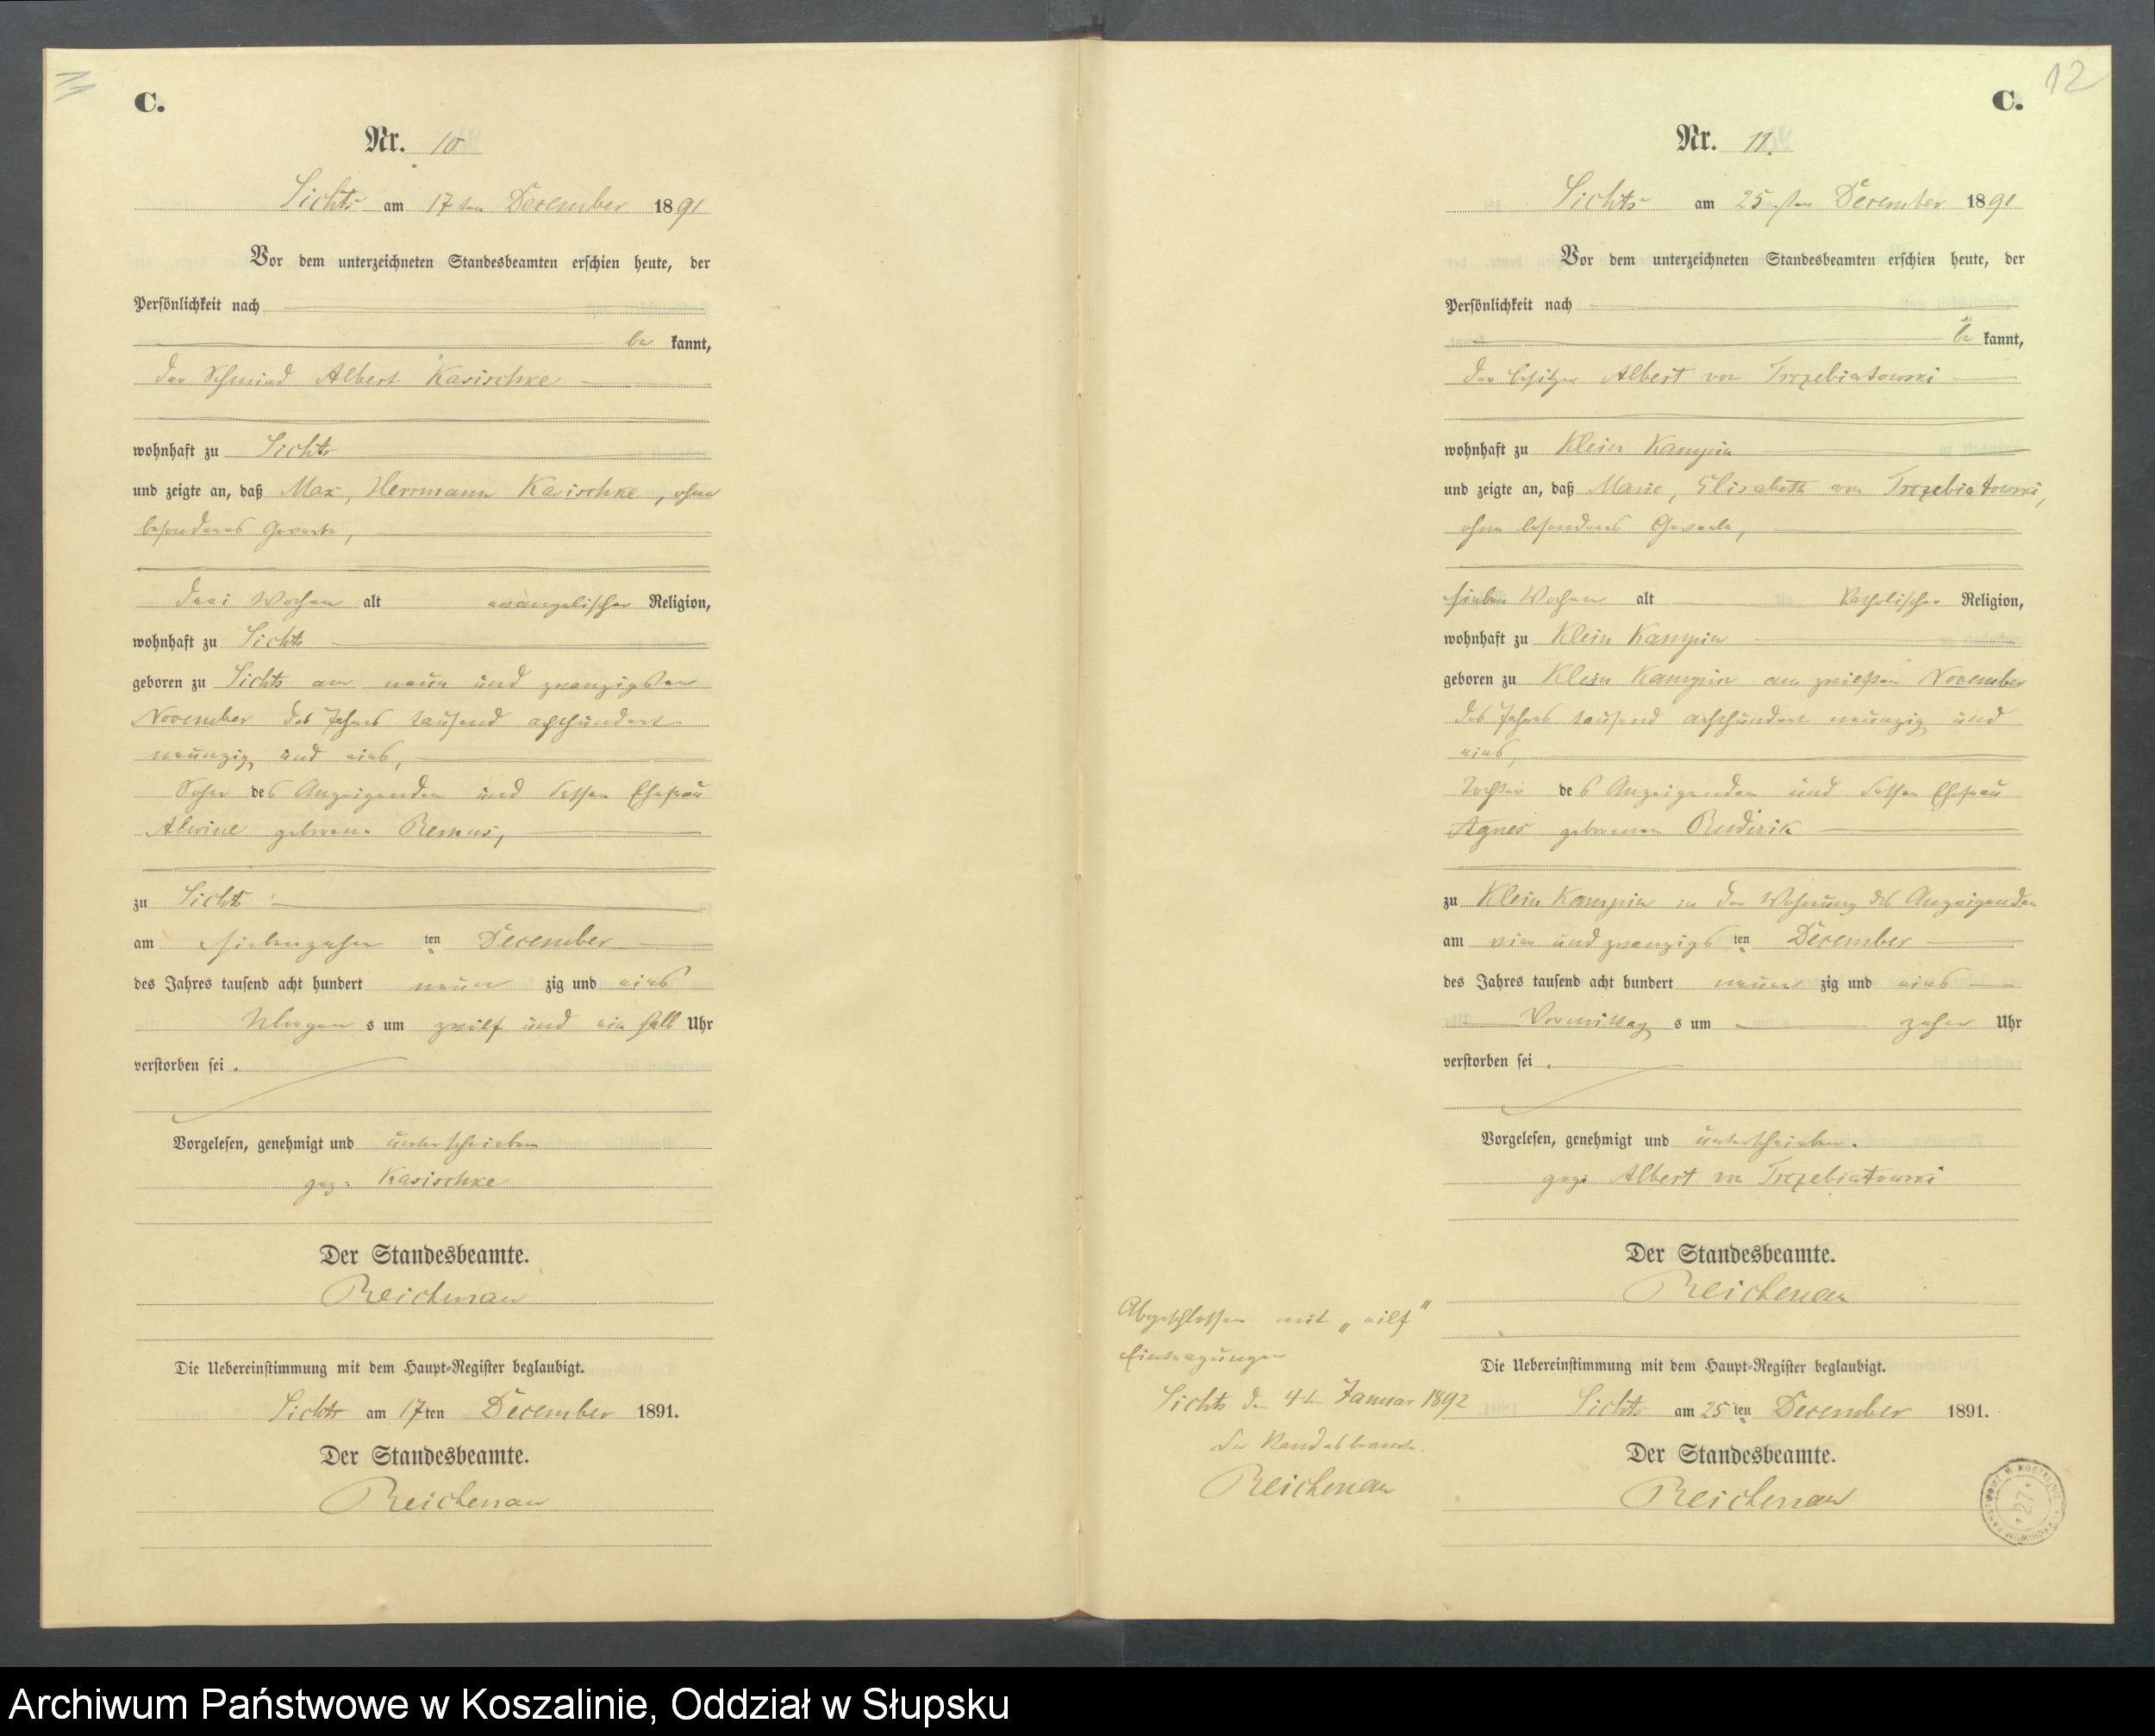 C.
Nr. 10
Sichts am 17ten December 1891
Vor dem unterzeichneten Standesbeamten erschien heute, der
Persönlichkeit nach
be kannt,
der Schmied Albert Kasischke
wohnhaft zu Sichts
und zeigte an, daß Max, Herrmann Kasischke, ohne
besonderes Gewerbe,
drei Wochen alt evangelischer Religion,
wohnhaft zu Sichts
geboren zu Sichts am neun und zwanzigsten
November des Jahres tausend achthundert
neunzig und eins,
Sohn des Anzeigenden und dessen Ehefrau
Alwine geborene Remus,
zu Sichts
am siebenzehn ten December
des Jahres tausend acht hundert neun zig und eins
Morgens um zwölf und ein halb Uhr
verstorben sei.
Vorgelesen, genehmigt und unterschrieben
gez: Kasischke
Der Standesbeamte.
Reichenau
Die Uebereinstimmung mit dem Haupt-Register beglaubigt.
Sichts am 17ten December 1891.
Der Standesbeamte.
Reichenau
12
C.
Nr. 11.
Sichts am 25.ten December 1891
Vor dem unterzeichneten Standesbeamten erschien heute, der
Persönlichkeit nach
be kannt,
der Besitzer Albert von Trzebiatowski
wohnhaft zu Klein
und zeigte an, daß Marie, Elisabeth von Trzebiatowski,
ohne besonderes Gewerbe,
sieben Wochen alt katholischer Religion,
wohnhaft zu Klein
geboren zu Klein am zweiten November
des Jahres tausend achthundert neunzig und
eins,
Tochter des Anzeigenden und dessen Ehefrau
Agnes geborenen
zu Klein in der Wohnung des Anzeigenden
am vier und zwanzigs ten December
des Jahres tausend acht hundert neun zig und eins
Vormittags um zehn Uhr
verstorben sei.
Vorgelesen, genehmigt und unterschrieben.
gez: Albert von Trzebiatowski
Der Standesbeamte.
Reichenau
Die Uebereinstimmung mit dem Haupt-Register beglaubigt.
Sichts am 25ten December 1891.
Der Standesbeamte.
Reichenau
Abgeschlossen mit „eilf"
Eintragungen
Sichts den 4t Januar 1892
Der Standesbeamte.
Reichenau
27
Archiwum Państwowe w Koszalinie, Oddział w Słupsku